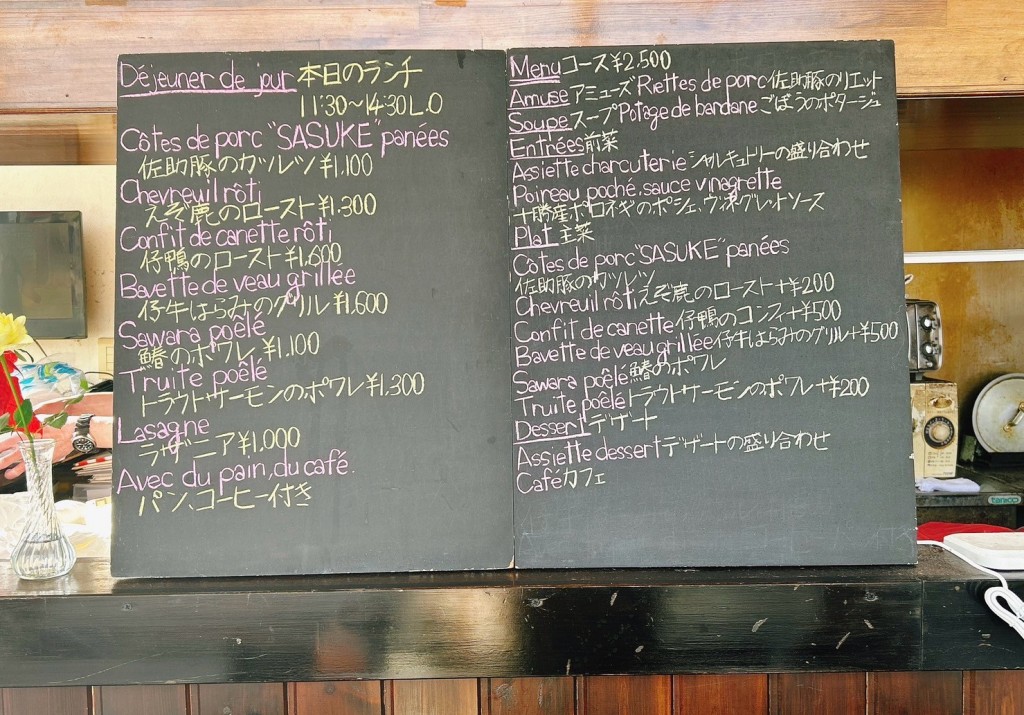 Déjeuner de jour 本日のランチ
11:30～14:30 L.O
Côtes de porc "SASUKE" panées
佐助豚のカツレツ ¥1,100
Chevreuil rôti
えぞ鹿のロースト ¥1,300
Confit de canette rôti
仔鴨のロースト ¥1,600
Bavette de veau grillée
仔牛はらみのグリル ¥1,600
Sawara poêlé
鰆のポワレ ¥1,100
Truite poêlé
トラウトサーモンのポワレ ¥1,300
Lasagne
ラザニア ¥1,000
Avec du pain, du café.
パン、コーヒー付き
Menu コース ¥2,500
Amuse アミューズ Riettes de porc 佐助豚のリエット
Soupe スープ Potage de bardane ごぼうのポタージュ
Entrées 前菜
Assiette charcuterie シャルキュトリーの盛り合わせ
Poireau poché, sauce vinagrette
十勝産ポロネギのポシェ、ヴィネグレットソース
Plat 主菜
Côtes de porc "SASUKE" panées
佐助豚のカツレツ
Chevreuil rôti えぞ鹿のロースト +¥200
Confit de canette 仔鴨のコンフィ +¥500
Bavette de veau grillée 仔牛はらみのグリル +¥500
Sawara poêlé 鰆のポワレ
Truite poêlé トラウトサーモンのポワレ +¥200
Dessert デザート
Assiette dessert デザートの盛り合わせ
Café カフェ